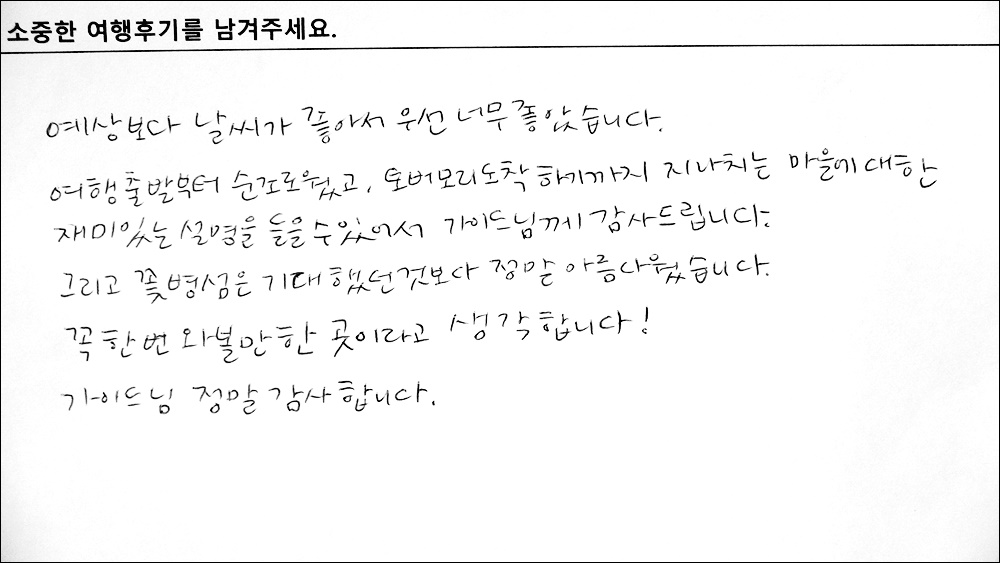 소중한 여행후기를 남겨주세요.
예상보다 날씨가 좋아서 우선 너무 좋았습니다.
여행 출발부터 순조로웠고, 토버모리 도착하기까지 지나치는 마을에 대한
재미있는 설명을 들을 수 있어서 가이드님께 감사드립니다.
그리고 꽃병섬은 기대했던것보다 정말 아름다웠습니다.
꼭 한번 와볼만한 곳이라고 생각합니다!
가이드님 정말 감사합니다.